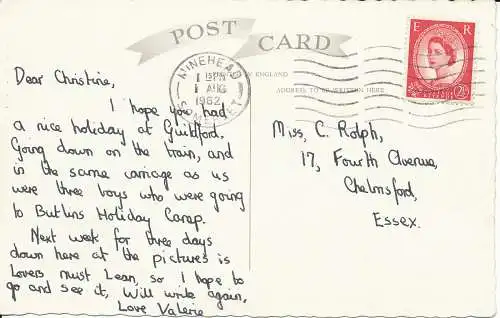 POST CARD
E R
2½D
MINEHEAD
12 PM
1 AUG
1962
SOMERSET
ENGLAND
ADDRESS TO BE WRITTEN HERE
Dear Christine,
I hope you had
a nice holiday at Guildford.
Going down on the train, and
in the same carriage as us
were three boys who were going
to Butlins Holiday Camp.
Next week for three days
down here at the pictures is
Lovers must Learn, so I hope to
go and see it, Will write again,
Love Valerie
Miss, C. Rolph,
17, Fourth Avenue,
Chelmsford,
Essex.